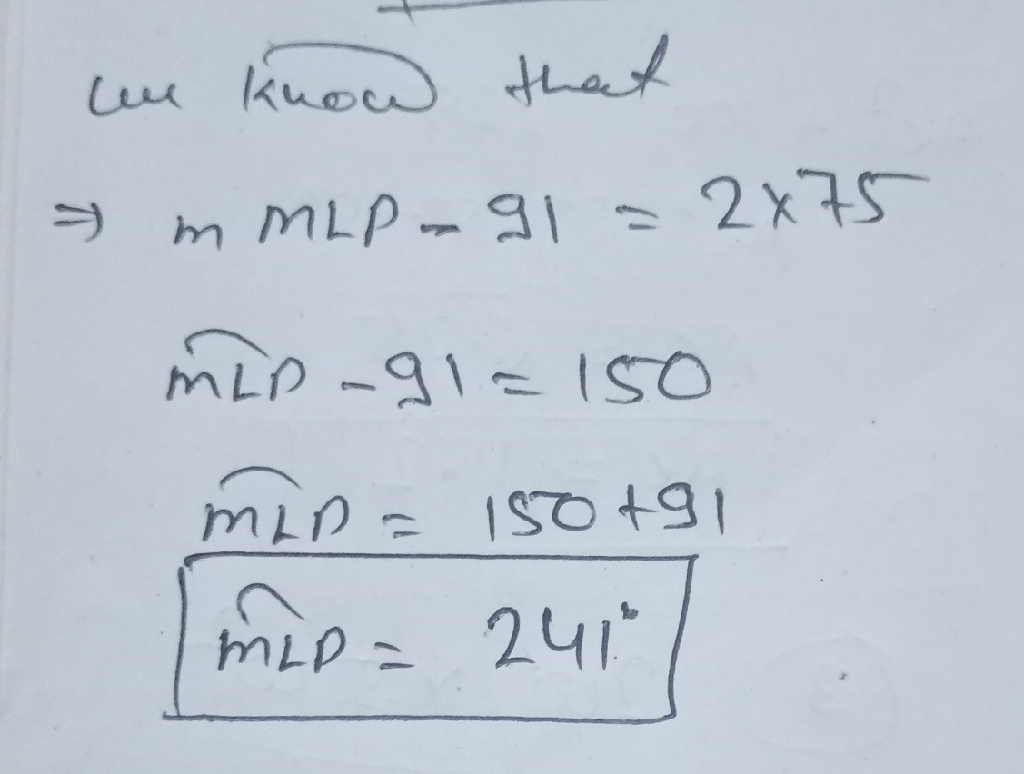 we know that
⇒ m MLP - 91 = 2×75
mLP - 91 = 150
mLP = 150 + 91
mLP = 241°